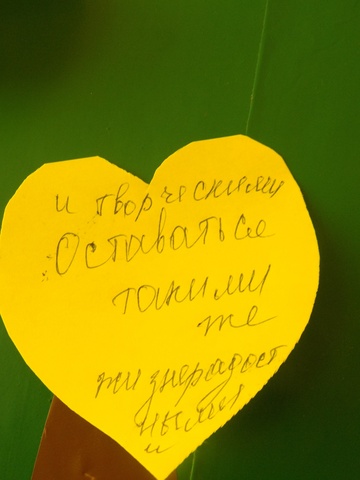 и творческими
Оставаться
такими
же
жизнерадост
ными
и